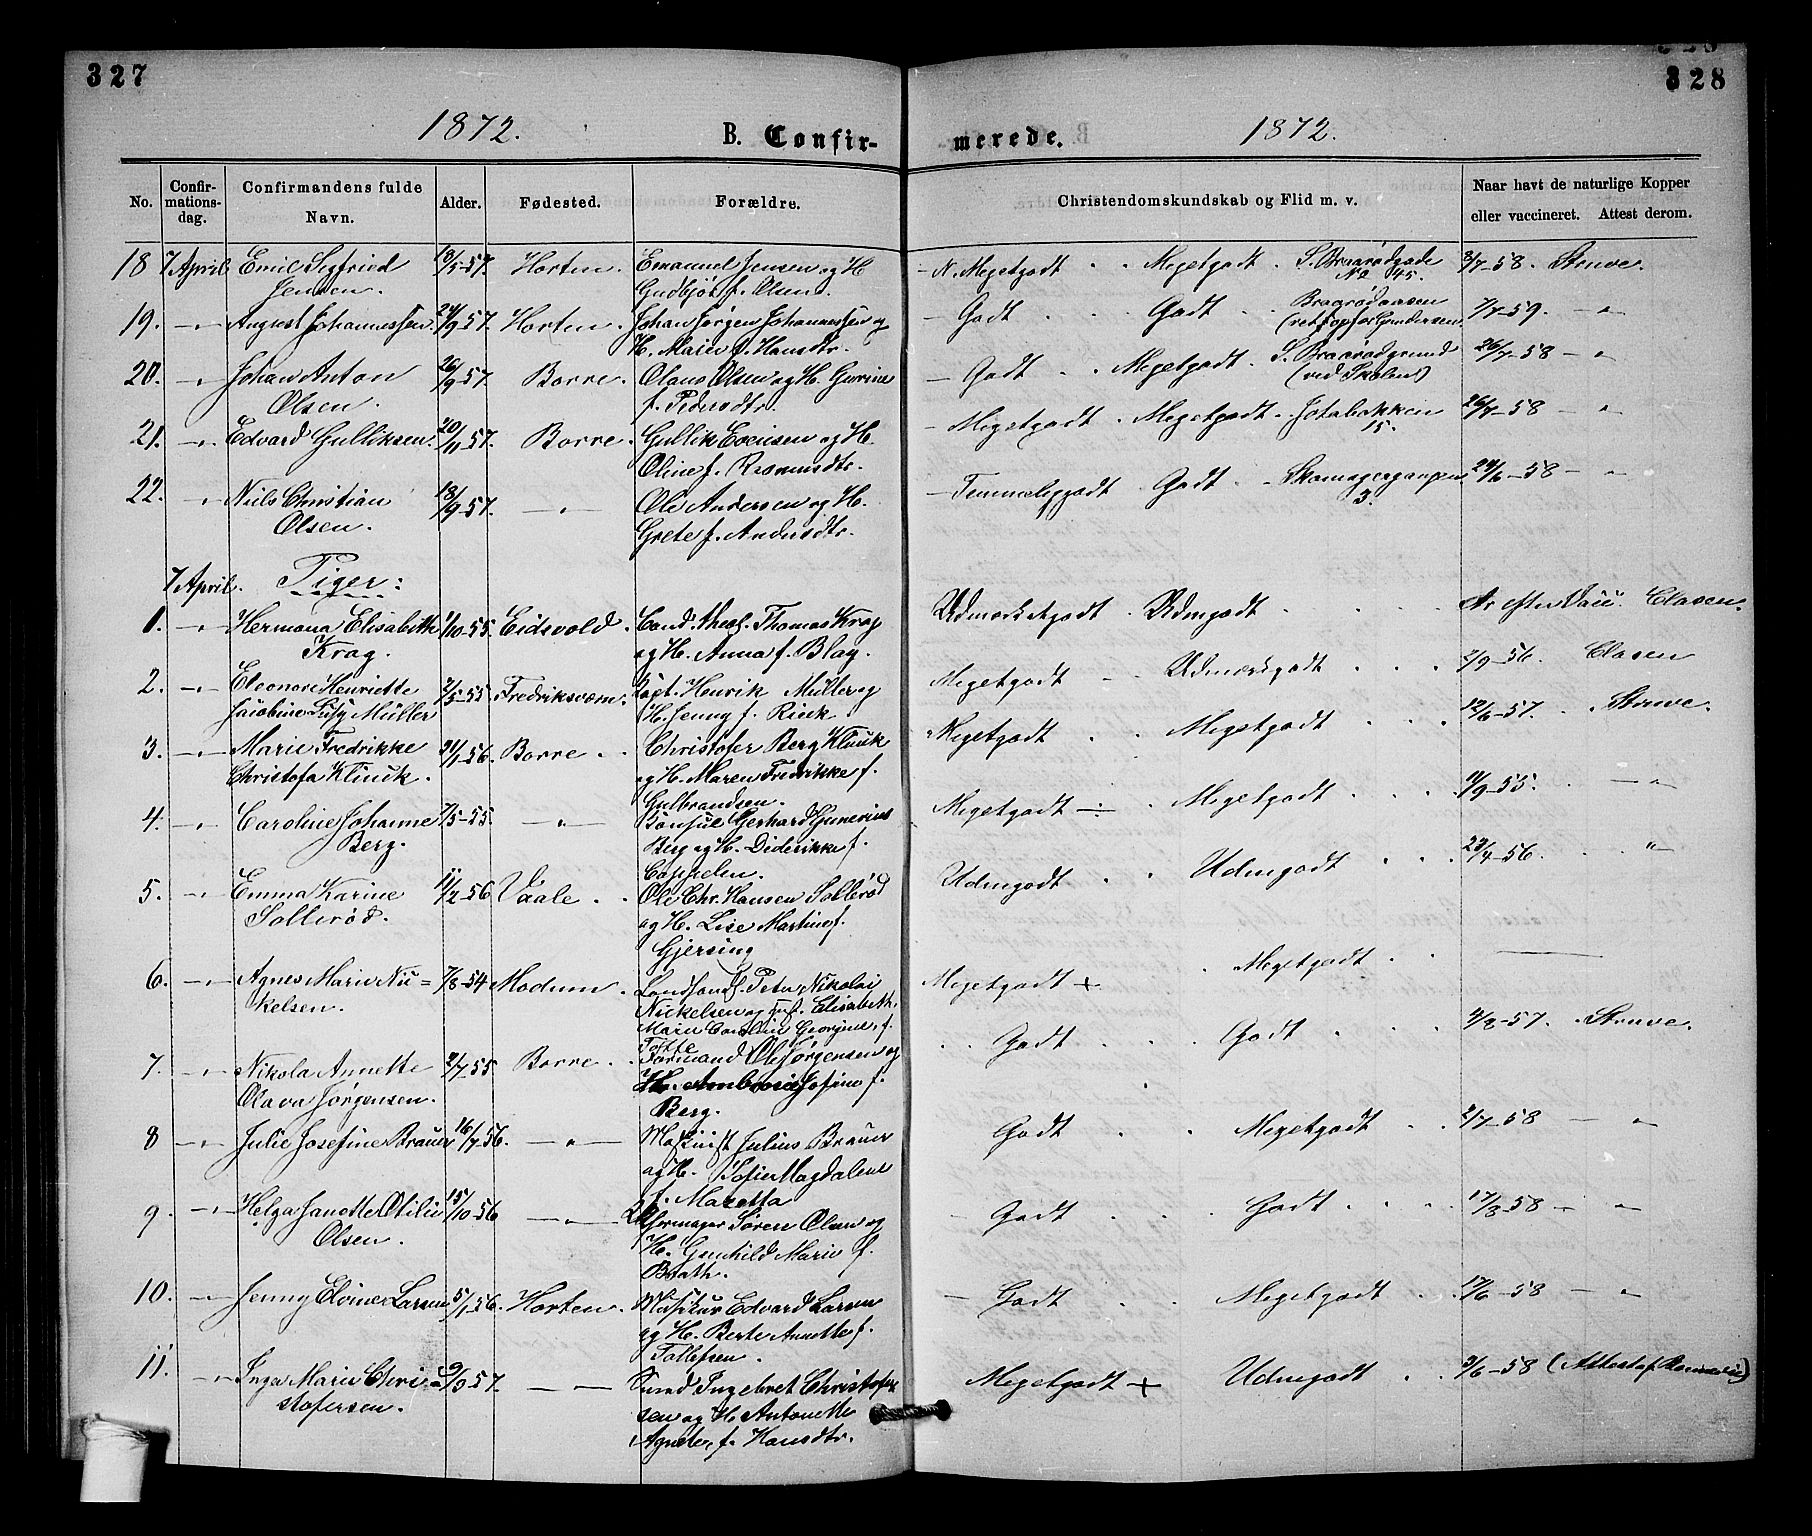 327
328
1872.
B. Confir-
merede.
1872.
No.
Confir-
mations-
dag.
Confirmandens fulde
Navn.
Alder.
Fødested.
Forældre.
Christendomskundskab og Flid m. v.
Naar havt de naturlige Kopper
eller vaccineret. Attest derom.
18 7 April Emil Sigfried 13/5-57. Horten. Emanuel Jensen og H
Jensen. Gudbjør f. Olsen.
19. -„- August Johannessen 24/9-57. Horten. Johan Jørgen Johannessen og
H. Maren f. Hansdtr.
20. -„- Johan Anton 26/9-57. Borre. Olaus Olsen og H. Gurine
Olsen. f. Pedersdtr.
21. -„- Edvard Gulliksen. 20/11-57. Borre. Gullik Evensen og H.
Oline f. Rasmusdtr.
22. „ Niels Christian 18/9-57. -„- Ole Andersen og H.
Olsen. Grete f. Andersdtr.
7 April. Piger:
1. -„- Hermana Elisabeth 1/10-55. Eidsvold. Cand. theol. Thomas Krag
Krag. og H. Anna f. Blag.
2. -„- Eleonore Henriette 2/5-55 Fredriksværn. Capt. Henrik Müller og
Jacobine Lusy Müller H. Jenny f. Rieck
3. -„- Marie Fredrikke 21/1-56. Borre. Christofer Berg Klinck
Christofa Klinck. og H. Maren Fredrikke f.
Gulbrandsen.
4. -„- Caroline Johanne 7/5-55. -„- Konsul Gerhard Gunerius
Berg. Berg og H. Diderikke f.
Cappelen.
5. -„- Emma Karine 11/2-56 Vaale. Ole Chr. Hansen Sollerød
Sollerød. og H. Lise Martine f.
Gjersing
6. -„- Agnes Marie Nic= 7/8-54 Modum. Landhandl. Peter Nikolai
kelsen. Nickelsen og Elisabeth
Maren Caroline Georgine, f.
Tofte
7. -„- Nikola Annette 2/7-55 Borre. Formand Ole Jørgensen og
Olava Jørgensen. H. Ambrosia Josine f.
Berg.
8 -„- Julie Josefine Brauer 16/7-56. -„- Maskinist Julius Brauer
og H. Sofie Magdalene
f. Maretta
9. -„- Helga Janette Otilie 15/10-56 -„- Søren Olsen og
Olsen. H. Gunhild Marie f.
Brath.
10. -„- Jenny Elvine Larsen 5/1-56. Horten. Edvard Larsen
og H. Berte Annette f.
Tollefsen.
11. -„- Inga Marie Chri= 9/3-57. -„- Smed Ingebret Christofer
stofersen. sen og H. Antonette
Agnete, f. Hansdtr.
- N. Megetgodt . . Megetgodt . S. Braarødgade 8/7-58. Struve.
No 45.
- Godt . . . Godt . Bragrødaasen 7/7-59. -„-
(ret op for Gundersen.
- Godt . . Megetgodt. S. Braarødgrund 26/7-58 -„-
(ved Skolen)
- Megetgodt . Megetgodt . Jotabakken 26/7-58 -„-
15.
- Temmeliggodt . Godt . - Skomagergangen 24/6-58 -„-
3.
Udmærketgodt . Udmgodt . . . Ar efter Vacc. Clasen.
Megetgodt - Udmærkgodt . . . 2/9-56. Clasen
Megetgodt . . Megetgodt . . . 12/6-57. . Struve.
Megetgodt -:- . Megetgodt . . . 11/9-55. . -„-
Udmgodt . . Udmgodt . . . 23/4-56. . „
Megetgodt + . Megetgodt . . ——
. . Godt . . . Godt . . . 9/8-57. . Struve.
Godt . . Megetgodt . . 2/7-58 - „
- Godt . . Godt . . . 17/8-58 - „
- Godt . . Megetgodt . . 17/6-58 - „
Megetgodt + . Udmgodt . . 3/6-58 (Attest af